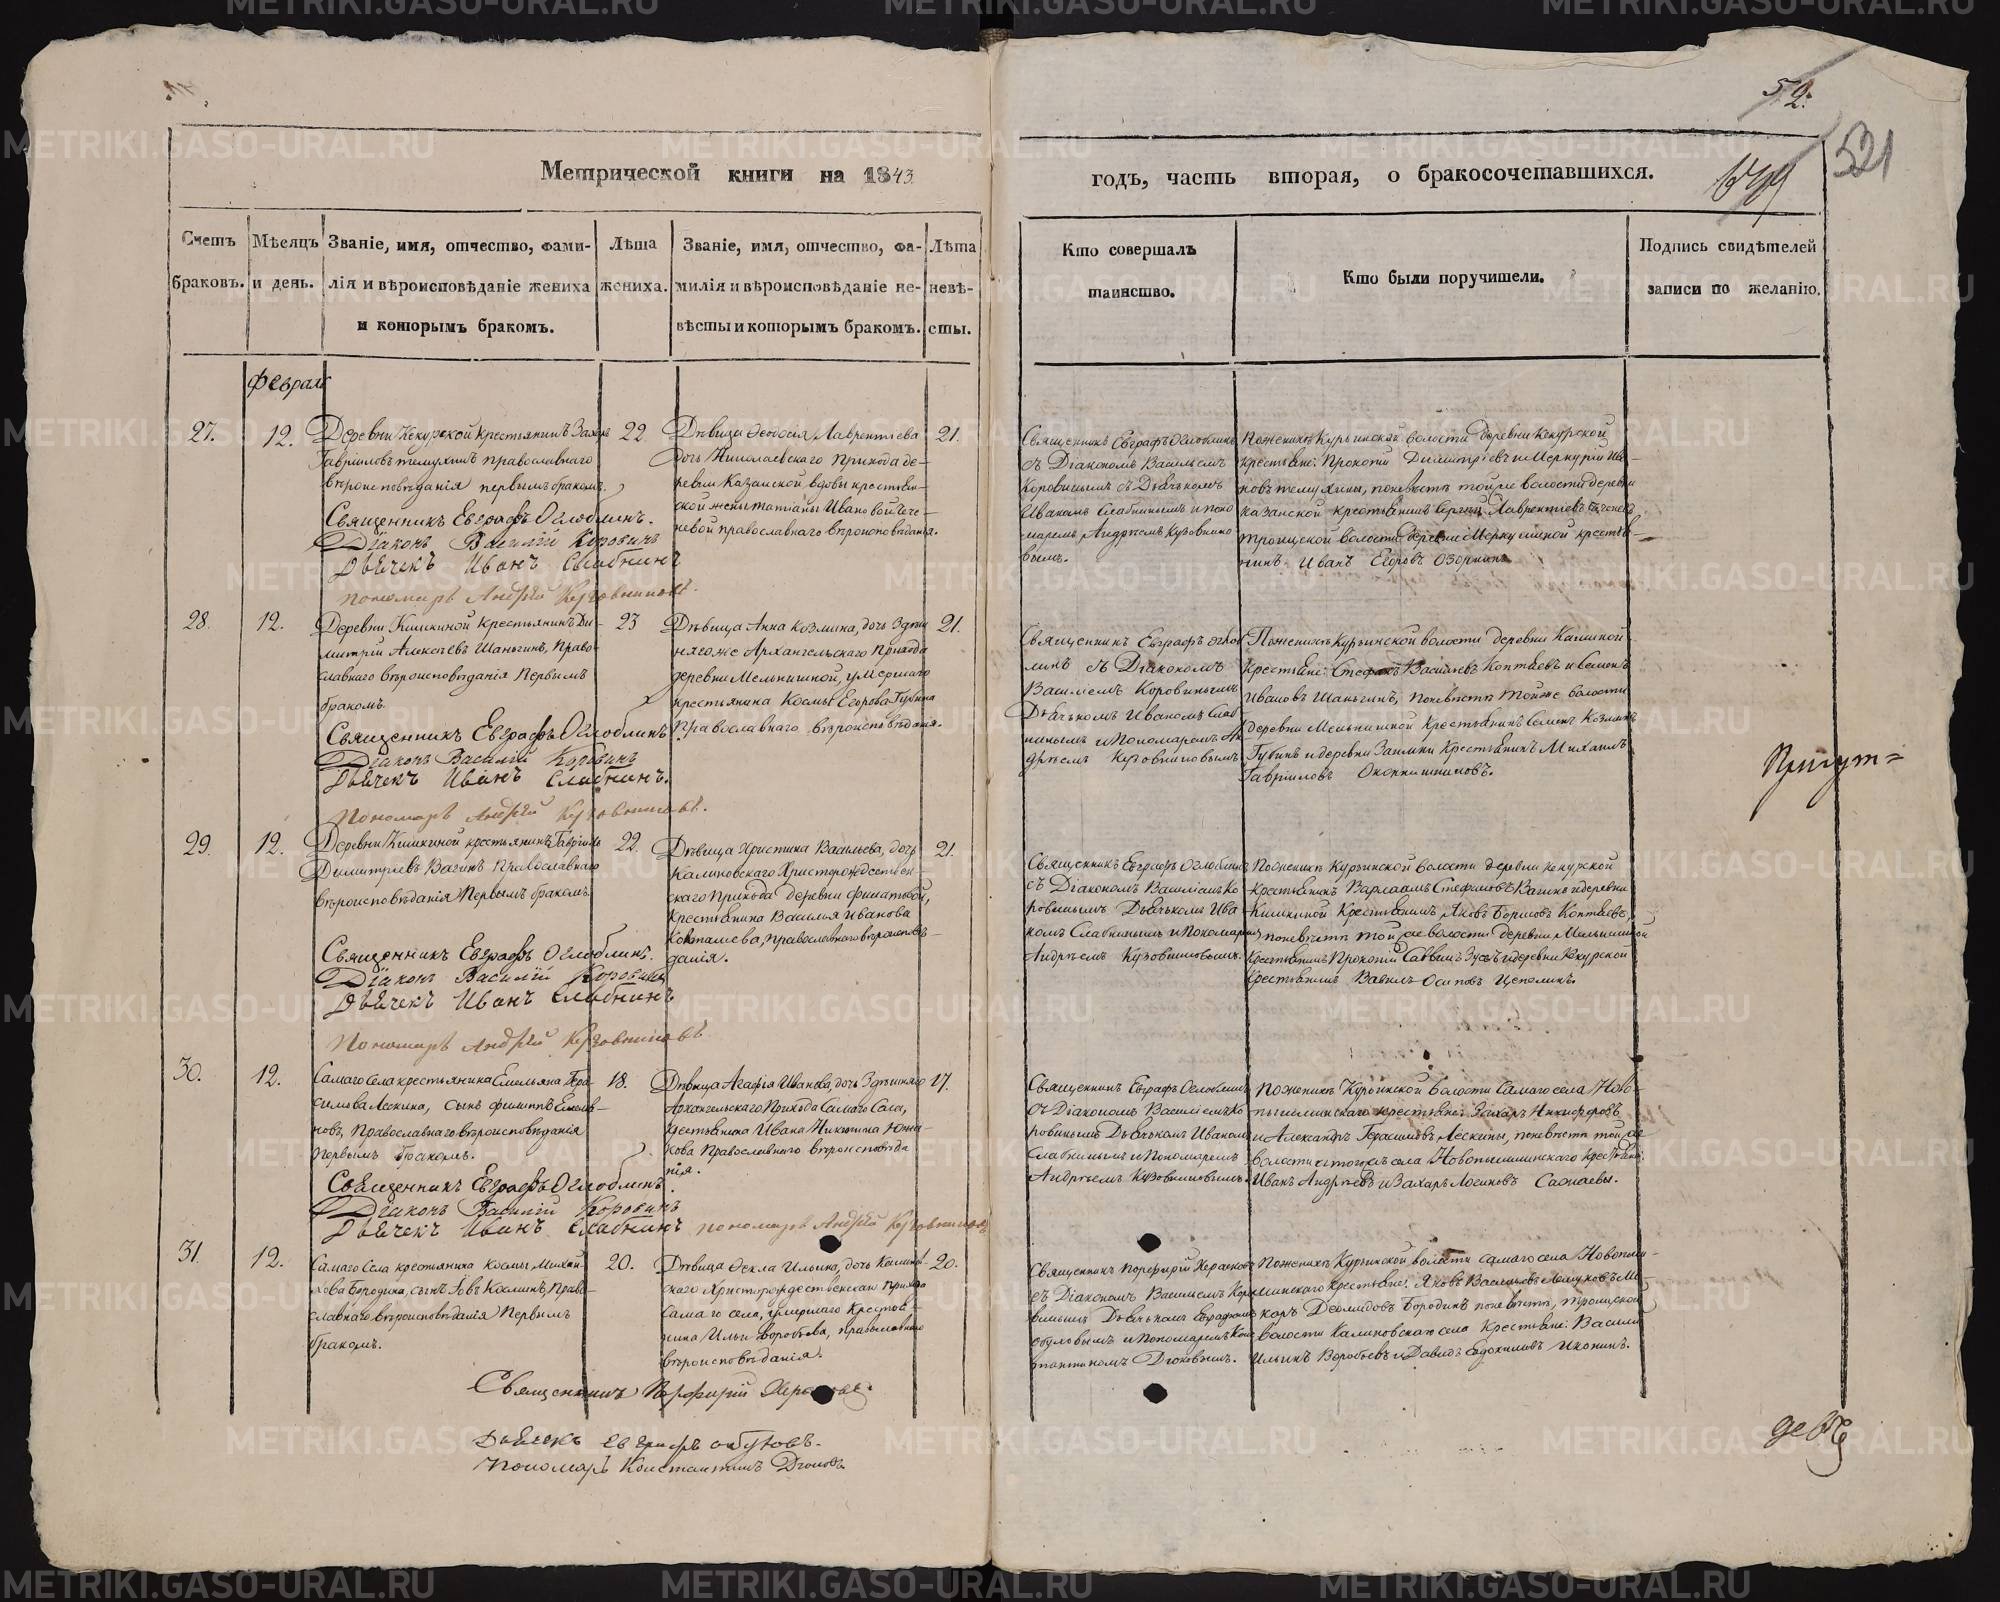 52.
521
Метрической книги на 1843.
годъ, часть вторая, о бракосочетавшихся.
Счетъ браковъ.
Мѣсяцъ и день.
Званіе, имя, отчество, фамилія и вѣроисповѣданіе жениха и которымъ бракомъ.
Лѣта жениха.
Званіе, имя, отчество, фамилія и вѣроисповѣданіе невѣсты и которымъ бракомъ.
Лѣта невѣсты.
Кто совершалъ таинство.
Кто были поручители.
Подпись свидѣтелей записи по желанію.
Февраль
27.
12.
Деревни Кекурской крестьянинъ
Гавріиловъ православнаго
вѣроисповѣданія первымъ бракомъ.
Священникъ Евграфъ Оглоблинъ.
Діаконъ Василій Коровинъ
Дьячекъ Иванъ Слабнинъ
пономарь Андрей Кузовниковъ.
22
Дѣвица Ѳеодосія Лаврентіева
дочь Николаевскаго Прихода де-
ревни Казанской вдовы крестьян-
ской жены Татіаны Ивановой
православнаго вѣроисповѣданія.
21.
Священникъ Евграфъ Оглоблинъ
съ Діакономъ Василіемъ
Коровинымъ съ Дьячькомъ
Иваномъ Слабнинымъ и поно
маремъ Андреемъ Кузовнико
вымъ.
Поженихѣ Курьинской волости деревни Кекурской
крестьяне: Прокопій Димитріевъ и Меркурій Ива-
новъ поневѣстѣ той же волости деревни
Казанской крестьянинъ Сергѣй Лаврентіевъ
троицкой волости деревни крестья-
нинъ Иванъ Егоровъ
28.
12.
Деревни Кишкиной крестьянинъ Ди-
митрій Алексѣевъ Шаньгинъ, Право-
славнаго вѣроисповѣданія Первымъ
бракомъ.
Священникъ Евграфъ Оглоблинъ
Діаконъ Василій Коровинъ
Дьячекъ Иванъ Слабнинъ.
Пономарь Андрей Кузовниковъ.
23
Дѣвица Анна Козмина, дочь Здѣш
няго же Архангельскаго Прихода
деревни Мельнишной, умершаго
крестьянина Космы Егорова Губина
Православнаго вѣроисповѣданія.
21.
Священникъ Евграфъ Огло
линъ съ Діакономъ
Василіемъ Коровинымъ
Дьячькомъ Иваномъ Слаб
нинымъ и Пономаремъ Ан
дреемъ Кузовниковымъ
Поженихѣ Курьинской волости деревни Кишкиной
Крестьяне: Стефанъ Васильевъ Коптяевъ и Семенъ
Ивановъ Шаньгинъ, поневѣстѣ той же волости
деревни Мельнишной Крестьянинъ Семенъ Козминъ
Губинъ и деревни Заимки Крестьянинъ Михаилъ
Гавріиловъ Оконнишниковъ.
29.
12.
Деревни Кишкиной крестьянинъ Гавріилъ
Димитріевъ Вагинъ Православнаго
вѣроисповѣданія Первымъ бракомъ.
Священникъ Евграфъ Оглоблинъ.
Діаконъ Василій Коровинъ
Дьячекъ Иванъ Слабнинъ
Пономарь Андрей Кузовниковъ
22.
Дѣвица Христина Васильева, дочь
Калиновскаго Христорождествен
скаго Прихода деревни Филатовой,
Крестьянина Василья Иванова
православнаго вѣроисповѣ-
данія.
21.
Священникъ Евграфъ Оглоблинъ
съ Діакономъ Василіемъ Ко
ровинымъ Дьячькомъ Ива
номъ Слабнинымъ и Пономаремъ
Андреемъ Кузовниковымъ.
Поженихѣ Курьинской волости деревни Кекурской
Крестьянинъ Варлаамъ Стефановъ Вагинъ и деревни
Кишкиной Крестьянинъ Яковъ Борисовъ Коптяевъ,
поневѣстѣ той же волости деревни Мельнишной
Крестьянинъ Прокопій Саввинъ и деревни Кекурской
Крестьянинъ Вавилъ Осиповъ
Припут=
30.
12.
Самаго Села крестьянина Емельяна Гера-
симова Лескина, сынъ Филиппъ Емелья-
новъ, Православнаго вѣроисповѣданія
первымъ бракомъ.
Священникъ Евграфъ Оглоблинъ.
Діаконъ Василій Коровинъ
Дьячекъ Иванъ Слабнинъ пономарь Андрей Кузовниковъ
18.
Дѣвица Агафія Иванова, дочь Здѣшняго
Архангельскаго Прихода Самаго Села,
Крестьянина Ивана Никитина Южа-
кова Православнаго вѣроисповѣда
нія.
17.
Священникъ Евграфъ Оглоблинъ
съ Діакономъ Василіемъ Ко
ровинымъ Дьячькомъ Иваномъ
Слабнинымъ и Пономаремъ
Андреемъ Кузовниковымъ.
Поженихѣ Курьинской волости Самаго села Ново-
пышминскаго крестьяне: Захаръ Никифоровъ
и Александръ Герасимовъ Лескины, поневѣстѣ той же
волости и тогожъ села Новопышминскаго Крестьяне:
Иванъ Андреевъ и Захаръ Логиновъ
31.
12.
Самаго Села крестьянина Космы Михай-
лова Бородина, сынъ Іовъ Косминъ, Право-
славнаго вѣроисповѣданія Первымъ
бракомъ.
20.
Дѣвица Ѳекла Ильина, дочь Калинов-
скаго Христорождественскаго Прихода
самаго села, умершаго Крестья-
нина Ильи Воробьева, православнаго
вѣроисповѣданія.
20.
Священникъ Порфирій Херасковъ
Дьячекъ Евграфъ
Пономарь Константинъ Дягковъ
Священникъ Порфирій Херасковъ
съ Діакономъ Василіемъ Коро
винымъ Дьячькомъ Евграфомъ
и Пономаремъ Кон
стантиномъ
Поженихѣ Курьинской волости самаго села Новопыш-
минскаго Крестьяне: Яковъ Васильевъ
Деомидовъ Бородинъ поневѣстѣ, троицкой
волости Калиновскаго села Крестьяне: Василій
Ильинъ Воробьевъ и Давидъ Евдокимовъ Иконинъ.
METRIKI.GASO-URAL.RU